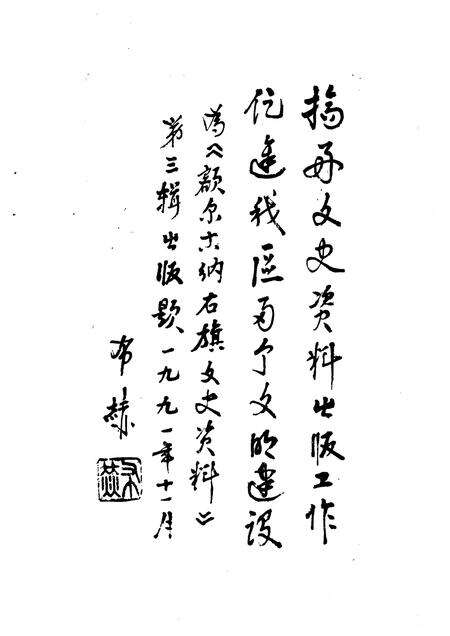 搞好文史资料出版工作
促进我区两个文明建设
为《额尔古纳右旗文史资料》
第三辑出版题 一九九一年十一月
布赫
布赫